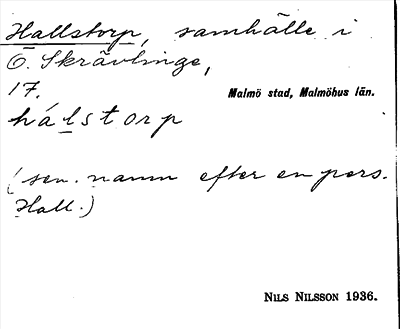 Hallstorp, samhälle i
Ö. Skrävlinge,
17.
Malmö stad, Malmöhus län.
hálstorp
(sen. namn efter en pers.
Hall.)
NILS NILSSON 1936.